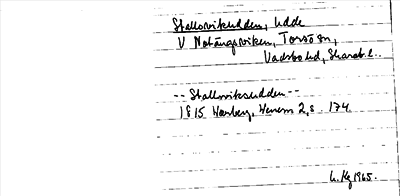 Stallorviksudden, udde
V Notängsviken, Torsö sn,
Vadsbo hd, Skarab.l.
-- Stallorviksudden --
1815 Warberg, Wenern 2, s. 174.
1965.